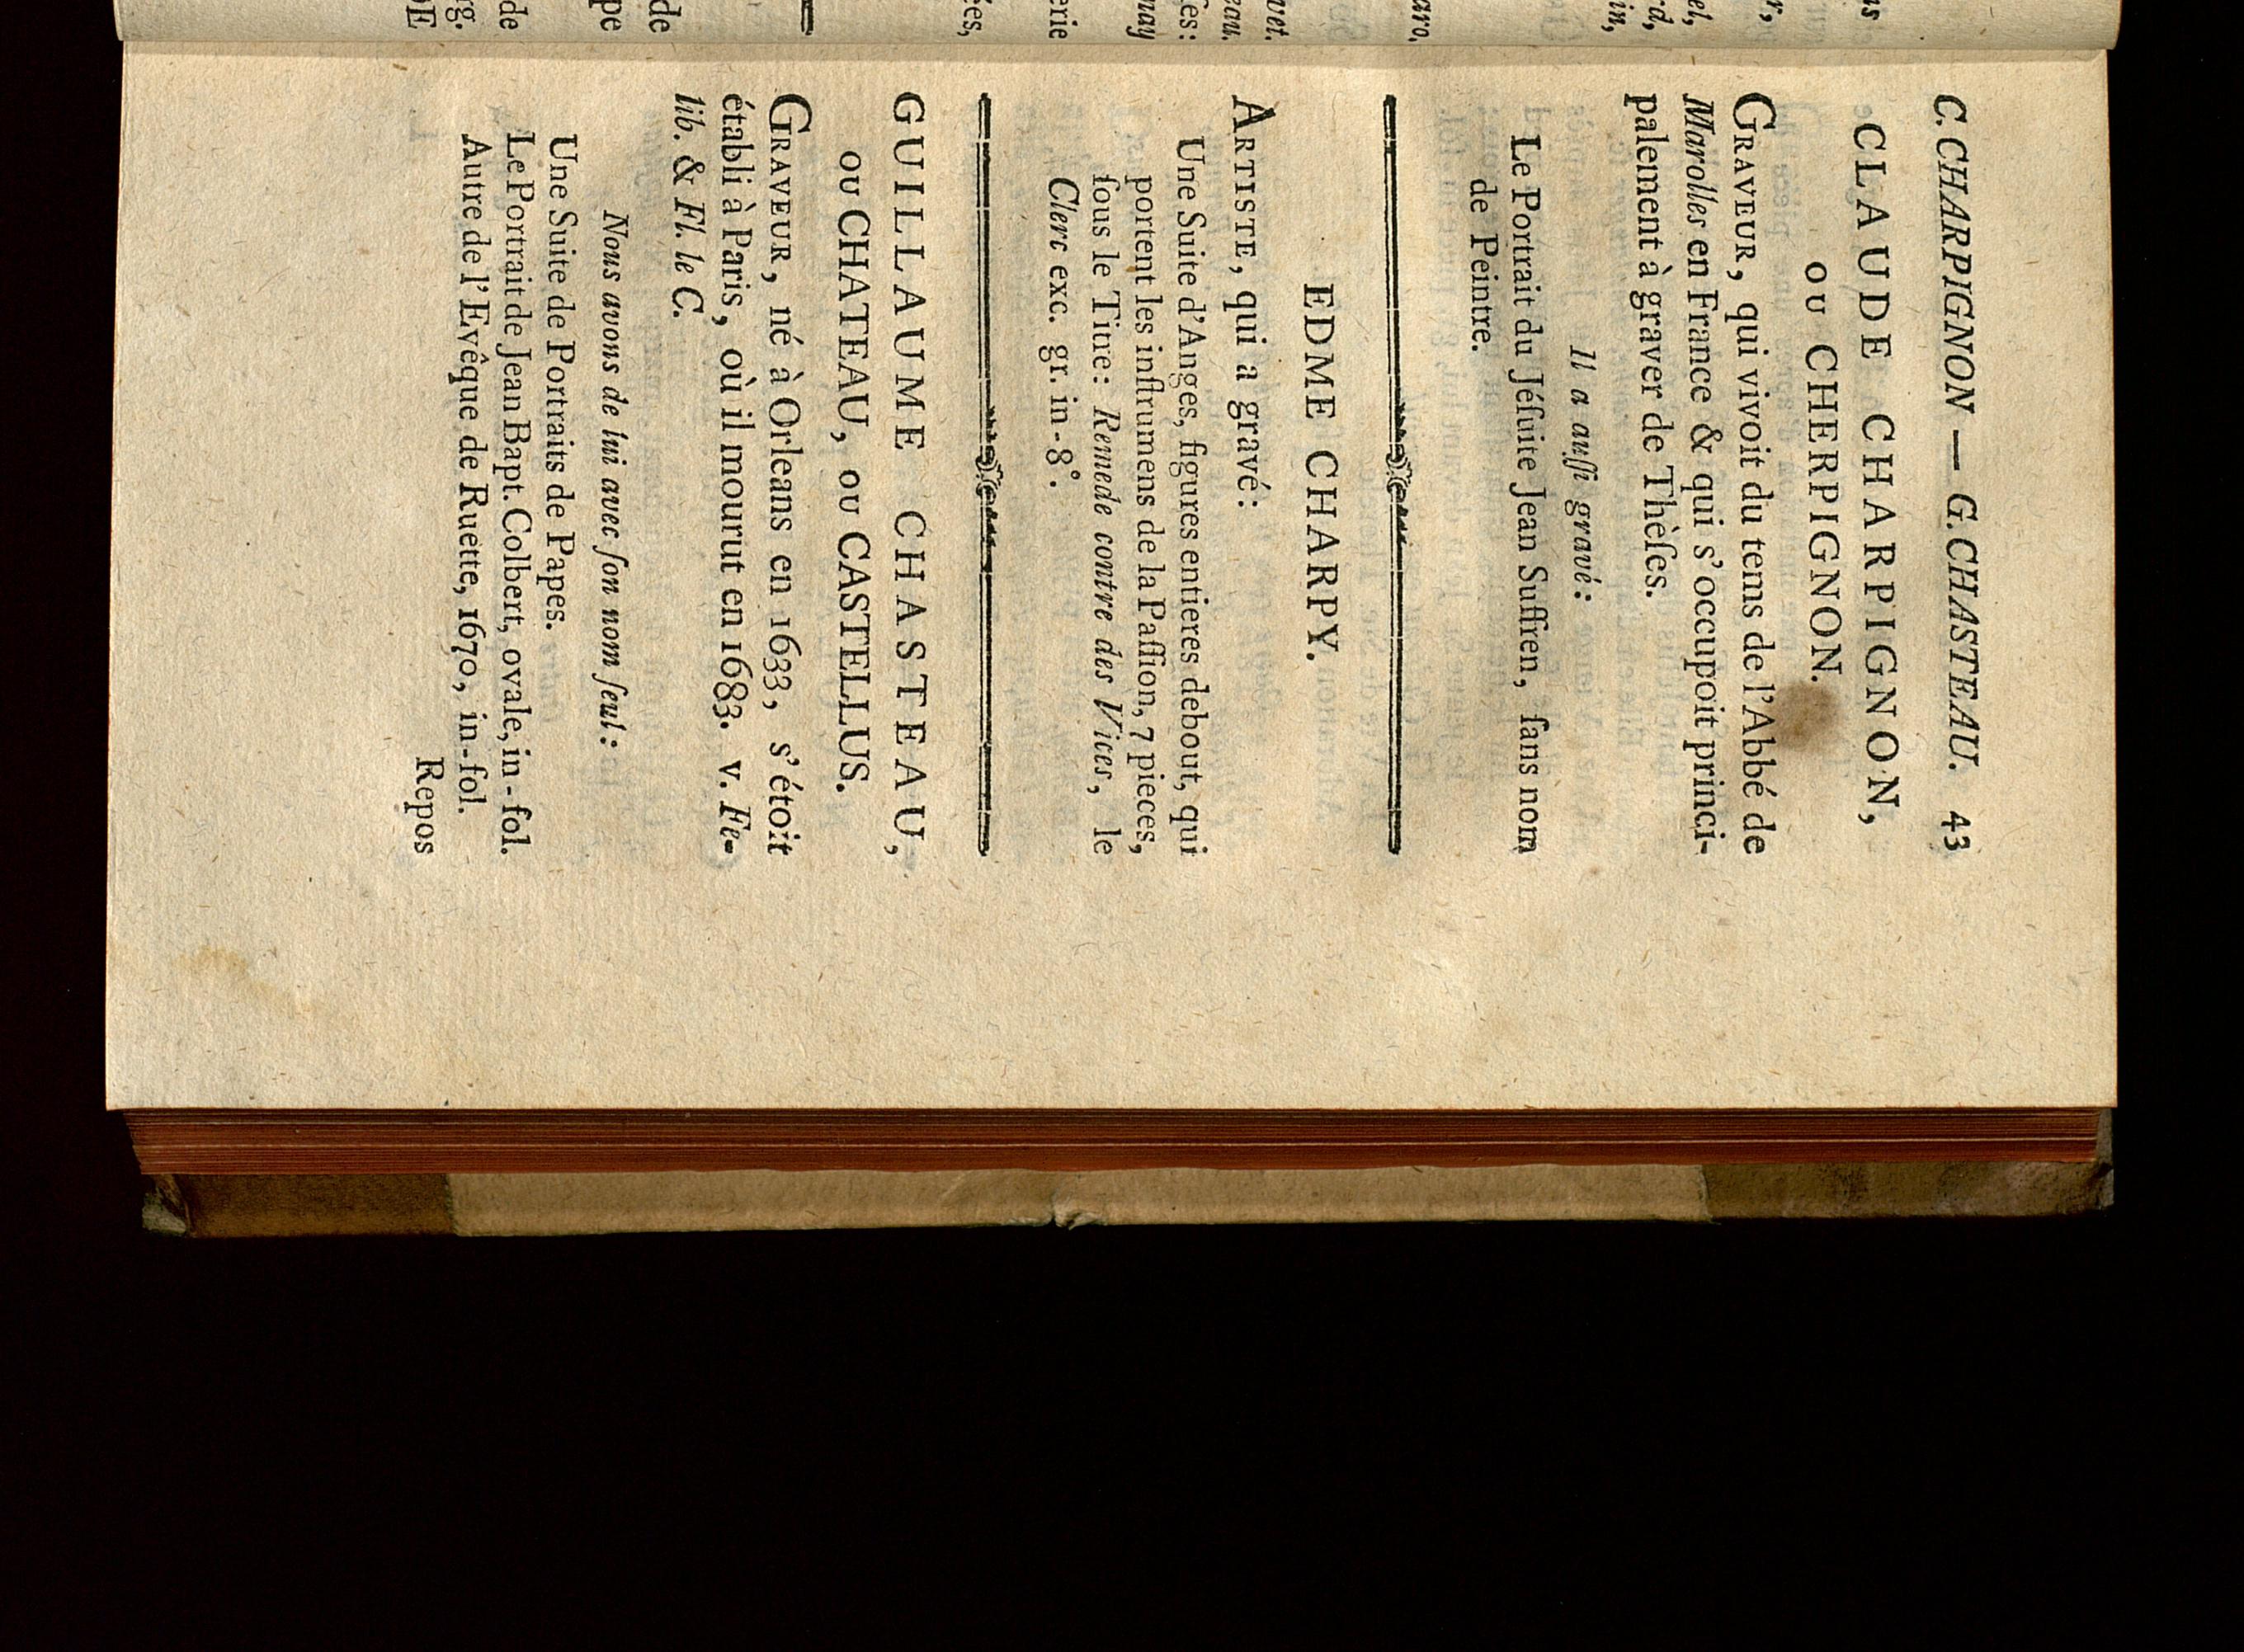 C. CHARPIGNON — G. CHASTEAU. 43
CLAUDE CHARPIGNON,
OU CHERPIGNON.
GRAVEUR, qui vivoit du tems de l'Abbé de
Marolles en France & qui s'occupoit princi-
palement à graver de Thèſes.
Il a auſſi gravé:
Le Portrait du Jéſuite Jean Suffren, ſans nom
de Peintre.
EDME CHARPY.
ARTISTE, qui a gravé:
Une Suite d'Anges, figures entieres debout, qui
portent les inſtrumens de la Paſſion, 7 pieces,
ſous le Titre: Remede contre des Vices, le
Clerc exc. gr. in-8°.
GUILLAUME CHASTEAU,
OU CHATEAU, OU CASTELLUS.
GRAVEUR, né à Orleans en 1633, s'étoit
établi à Paris, où il mourut en 1683. v. Fe-
lib. & Fl. le C.
Nous avons de lui avec ſon nom ſeul:
Une Suite de Portraits de Papes.
Le Portrait de Jean Bapt. Colbert, ovale, in-fol.
Autre de l'Evêque de Ruette, 1670, in-fol.
Repos